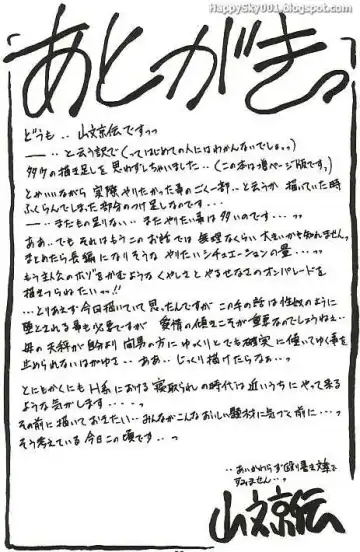 HappySky001.blogspot.com
あとがきっ
どうも‥山文京伝ですっっ
―‥と云う訳で(ってはじめての人にはわかんないでしょっ)
多々の描き足しを思わずしちゃいました‥(この本は増ページ版ですっ)
とかいいながら実際やりたかった事のごく一部‥と云うか描いていた時
ふくらんでしまった部分のつけ足しなのです・・・
―‥まだもの足りない‥まだやりたい事は多いのです・・・っ
ああ‥でもそれはもうこのお話では無理なくらい大きいかも知れません。
まとめたら長編になりそうなやりたいシチュエーションの量・・・っ
もう主人公のホゾをかむようなくやしさとやるせなさのオンパレードを
描きつらねたいっっ!!
・・・とりあえず今回描いていて思ったんですがこの手の話は性奴のように
堕とされる事も必要ですが愛情の傾きこそが重要なのでしょうねぇ‥
母の天秤が自分より間男の方にゆっくりとでも確実に傾いてゆく事を
止められないはがゆさ‥ああ‥じっくり描けたらなぁ‥っ
とにもかくにもH系における寝取られの時代は近いうちにやって来る
ような気がします・・・・っ
その前に描いておきたい‥みんながこんなおいしい題材に気づく前に・・・っ
そう考えている今日この頃です‥っ
‥あいかわらず殴り書き文章で
すみません‥っ
山文京伝